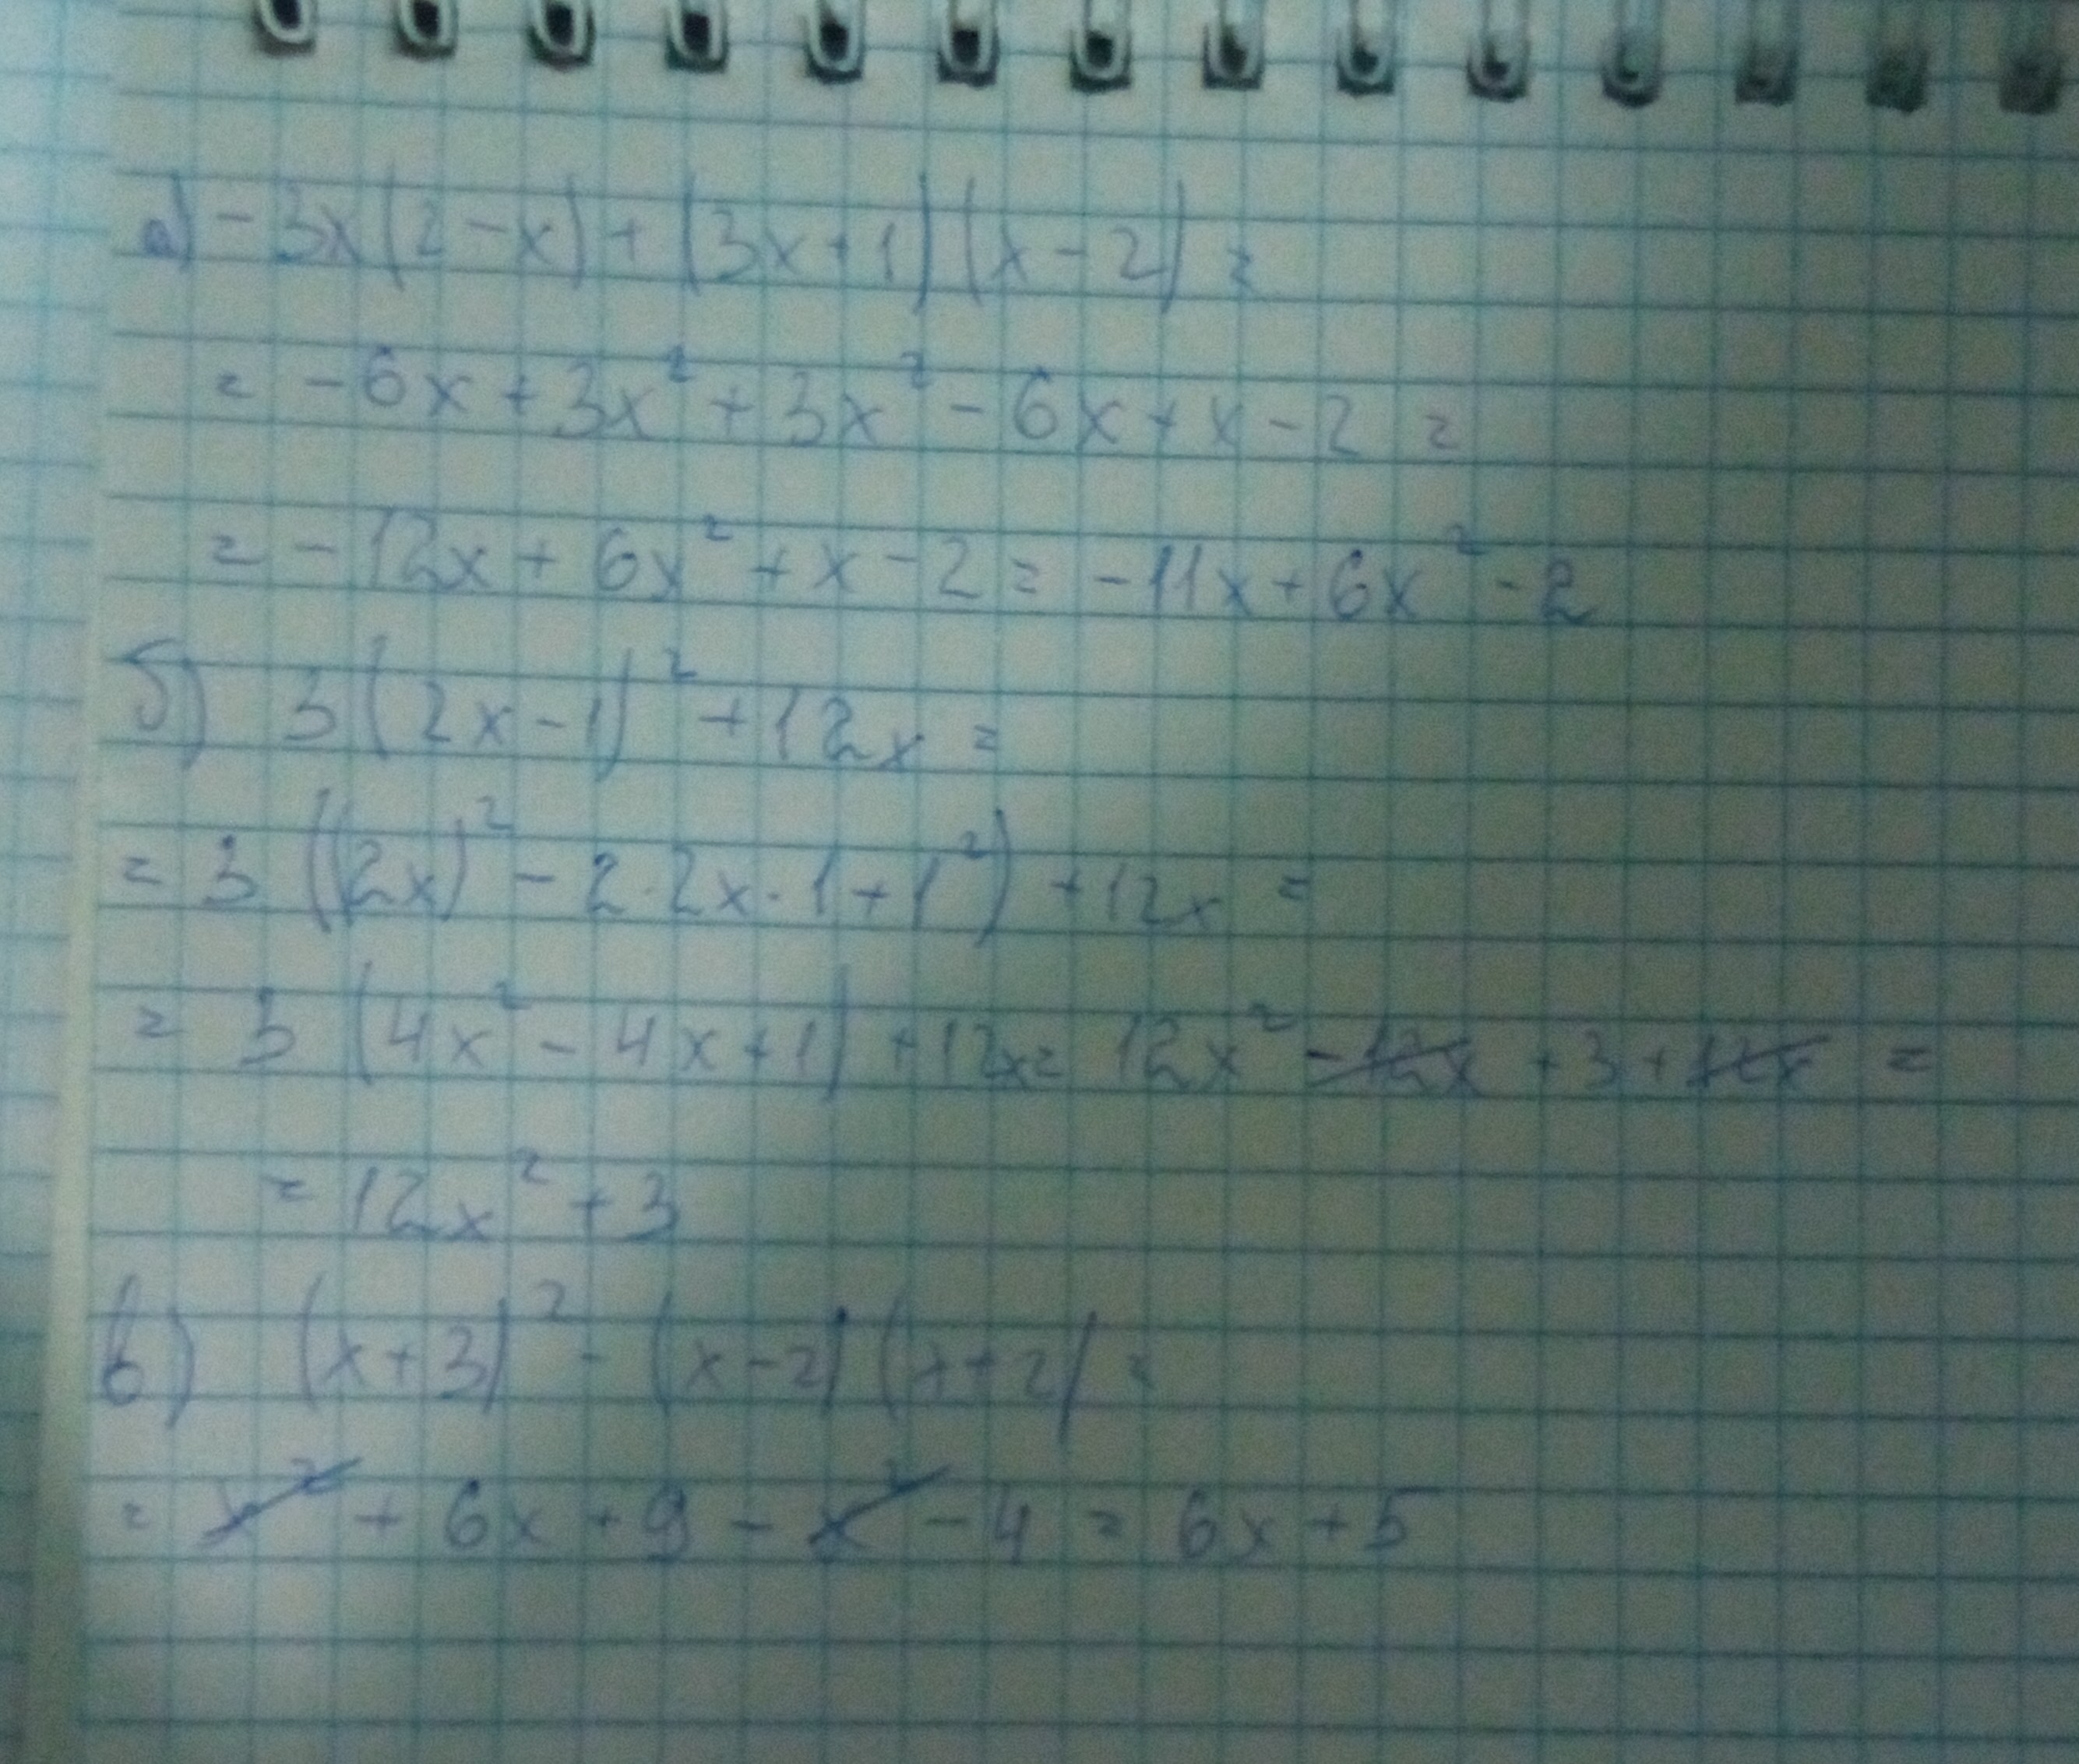 а) -3x(2-x)+(3x+1)(x-2)=
= -6x+3x²+3x²-6x+x-2=
= -12x+6x²+x-2= -11x+6x²-2
б) 3(2x-1)²+12x=
= 3((2x)²-2·2x·1+1²)+12x=
= 3(4x²-4x+1)+12x= 12x²-12x+3+12x=
= 12x²+3
в) (x+3)²-(x-2)(x+2)=
= x²+6x+9-x²-4= 6x+5